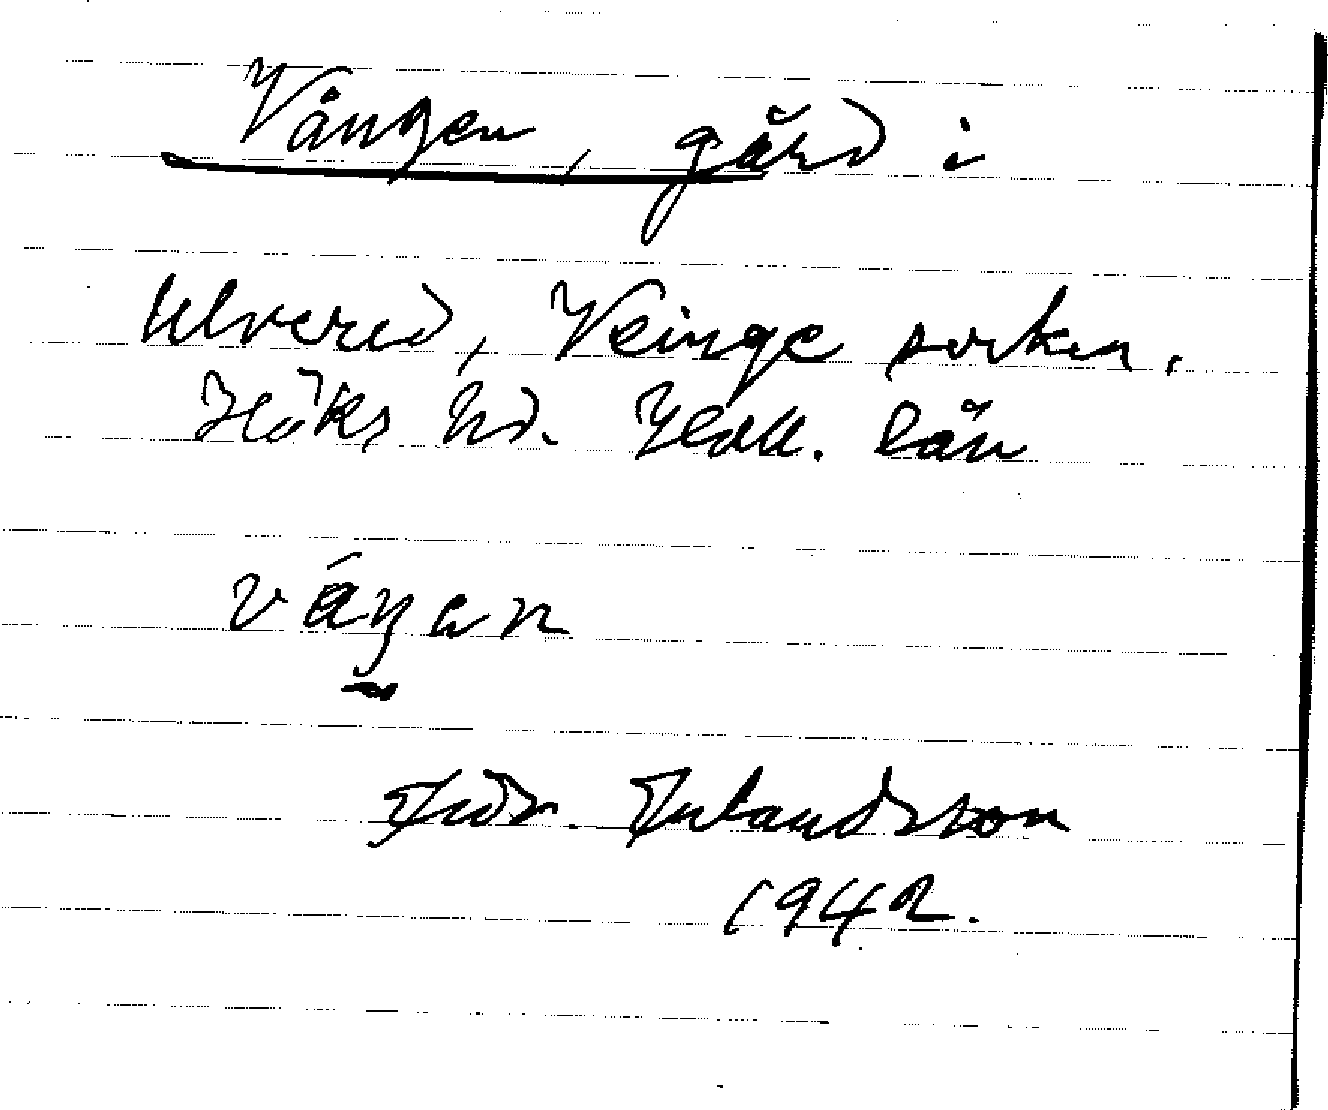 Vången, gård i
Ulvered, Veinge socken,
Höks hd. Hall. län
váŋan
Fridr. Erlandsson
1942.